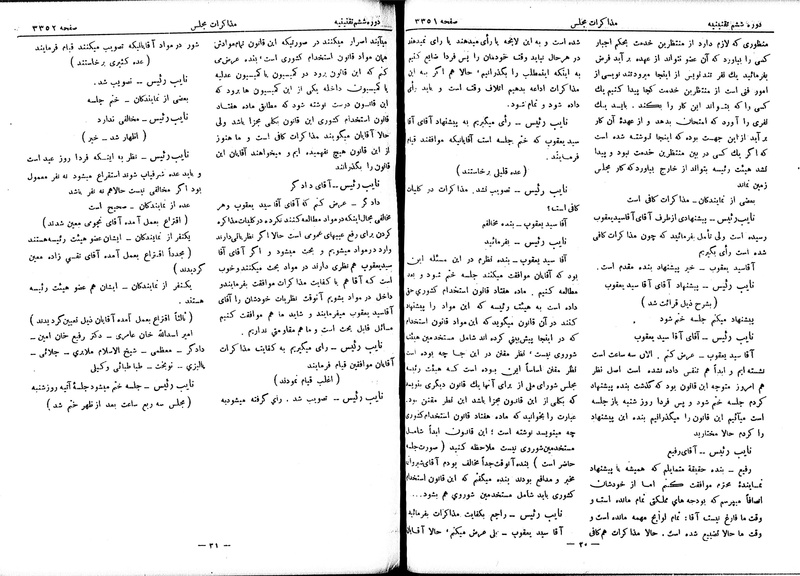 دوره ششم تقنینیه
مذاکرات مجلس
صفحه ۳۳۵۱
منظوری که لازم دارد از منتظرین خدمت بحکم اجبار
کسی را نیاورد که آن عضو نتواند از عهده بر آید فرض
بفرمائید یك نفر تندنویس از اینجا میرود تندنویسی از
امور فنی است از منتظرین خدمت کجا پیدا کنیم یك
کسی را که بتواند این کار را بکند. بایستی یك
نفری را آورد که امتحان بدهد و از عهده آن کار
بر آید از این جهت بوده که اینجا نوشته شده است
که اگر یك کسی در بین منتظرین خدمت نبود و پیدا
نشد هیئت رئیسه بتواند از خارج بیاورد که کار مجلس
زمین نماند
بعضی از نمایندگان - مذاکرات کافی است
نایب رئیس - پیشنهادی از طرف آقای آقا سید یعقوب
رسیده است ولی تأمل بفرمائید که چون مذاکرات کافی
شده است رأی بگیریم
آقاسید یعقوب - خیر پیشنهاد بنده مقدم است.
نایب رئیس - پیشنهاد آقای آقا سید یعقوب
(بشرح ذیل قرائت شد)
پیشنهاد میکنم جلسه ختم شود
نایب رئیس - آقای آقا سید یعقوب
آقا سید یعقوب - عرض کنم. الان سه ساعت است
نشسته ایم و ابداً هم تنفس داده نشده است اصل نظر
هم امروز متوجه این قانون بود که گذشت بنده پیشنهاد
کردم جلسه ختم شود و پس فردا روز شنبه باز جلسه
است میآئیم این قانون را میگذرانیم بنده این پیشنهاد
را کردم حالا مختارید
نایب رئیس - آقای رفیع
رفیع - بنده حقیقة متمایلم که همیشه با پیشنهاد
نماینده محترم موافقت کنم اما از خودشان
انصافاً میپرسم که بودجه های مملکتی تمام مانده است و
وقت ما فارغ نیست آقا: تمام لوایح مهمه مانده است و
وقت ما حالا تضییع شده است. حالا مذاکرات هم کافی
- ۳۰ -
شده است و به این لایحه یا رأی میدهند یا رأی نمیدهند
در هر حال نباید وقت خودمان را پس فردا ضایع کنیم
به اینکه اینمطلب را بگذرانیم؛ حالا هم اگر سه این
مذاکرات ادامه بدهیم اتلاف وقت است و باید رأی
داده شود و تمام شود.
نایب رئیس - رأی میگیریم به پیشنهاد آقای آقا
سید یعقوب که ختم جلسه است آقایانیکه موافقند قیام
فرمایند.
(عده قلیل برخاستند)
نایب رئیس - تصویب نشد. مذاکرات در کلیات
کافی است؟
آقا سید یعقوب - بنده مخالفم
نایب رئیس - بفرمائید
آقا سید یعقوب - بنده نظرم در این مسئله این
بود که آقایان موافقت میکنند جلسه ختم شود و بعد
مطالعه کنیم. ماده هفتاد قانون استخدام کشوری حق
داده است به هیئت رئیسه که این مواد را پیشنهاد
کنند در آن قانون میگوید که این مواد قانون استخدام
که در اینجا پیش بینی کرده اند شامل مستخدمین هیئت
شوروی نیست؛ نظر مقنن در این جا چه بوده است
نظر مقنن اساساً این بوده است که هیئت رئیسه
مجلس شورای ملی از برای آنها یك قانون دیگری بنویسد
که بکلی از این قانون مجزا باشد این نظر مقنن بود.
عبارت را بخوانید که ماده هفتاد قانون استخدام کشوری
چه مینویسد نوشته است؛ این قانون ابداً شامل
مستخدمین شوروی نیست ملاحظه کنید (صورت جلسه
حاضر است) بنده آنوقت جداً مخالف بودم آقای شیروانی
مخبر و مدافع بودند بنده میگفتم که این قانون استخدام
کشوری باید شامل مستخدمین شوروی هم بشود...
نایب رئیس - راجع بکفایت مذاکرات بفرمائید
آقا سید یعقوب - بلی عرض میکنم؛ حالا آقایان
دوره ششم تقنینیه
مذاکرات مجلس
صفحه ۳۳۵۲
میآیند اصرار میکنند در صورتیکه این قانون تمام موادش
همان مواد قانون استخدام کشوری است؛ بنده عرض می
کنم که این قانون برود در کمیسیون یا کمیسیون عدلیه
یا کمیسیون داخله یکی از این کمیسیون ها برود که
این قانون درست نوشته شود که مطابق ماده هفتاد
قانون استخدام کشوری این قانون بکلی مجزا باشد ولی
حالا آقایان میگویند مذاکرات کافی است و ما هنوز
از این قانون هیچ نفهمیده ایم و میخواهند آقایان این
قانون را بگذرانند
نایب رئیس - آقای دادگر
دادگر - عرض کنم که آقای آقا سید یعقوب و هر
مخالفی مجال اینکه در مواد مطالعه کنند نکرده در کلیات مذاکره
کردن برای رفع عیبهای عمومی است حالا اگر نظریاتی دارند
وارد در مواد میشویم و بحث میشود و اگر آقای آقا
سید یعقوب هم نظری دارند در مواد بحث میکنند و خوب
است آقا هم با کفایت مذاکرات موافقت بفرمایند و
داخل در مواد بشویم آنوقت نظریات خودشان را آقای
آقاسید یعقوب میفرمایند و شاید ما هم موافقت کنیم
مسائل قابل بحث است و ما هم مقاومتی نداریم.
نایب رئیس - رأی میگیریم به کفایت مذاکرات
آقایان موافقین قیام فرمایند
(اغلب قیام نمودند)
نایب رئیس - تصویب شد. رأی گرفته میشود به
شور در مواد آقایانیکه تصویب میکنند قیام فرمایند
(عده کثیری برخاستند)
نایب رئیس - تصویب شد.
بعضی از نمایندگان - ختم جلسه
نایب رئیس - مخالفی ندارد
(اظهار شد - خیر)
نایب رئیس - نظر به اینکه فردا روز عید است
و باید عده شرفیاب شوند استقراع میشود نه نفر معمول
بود اگر مخالفی نیست حالا هم نه نفر باشد
عده از نمایندگان - صحیح است
(اقتراع بعمل آمده آقای نجومی معین شدند)
یکنفر از نمایندگان - ایشان عضو هیئت رئیسه هستند
(مجدداً اقتراع بعمل آمده آقای نفسی زاده معین
گردیدند)
یکنفر از نمایندگان - ایشان هم عضو هیئت رئیسه
هستند.
(ثالثاً اقتراع بعمل آمده آقایان ذیل تعیین گردیدند)
امیر اسدالله خان عامری - دکتر رفیع خان امین -
دادگر - معظمی - شیخ الاسلام ملایری - جلائی -
پالیزی - نوبخت - طباطبائی وکیل
نایب رئیس - جلسه ختم میشود جلسه آتیه روز شنبه
(مجلس سه ربع ساعت بعد از ظهر ختم شد)
- ۳۱ -